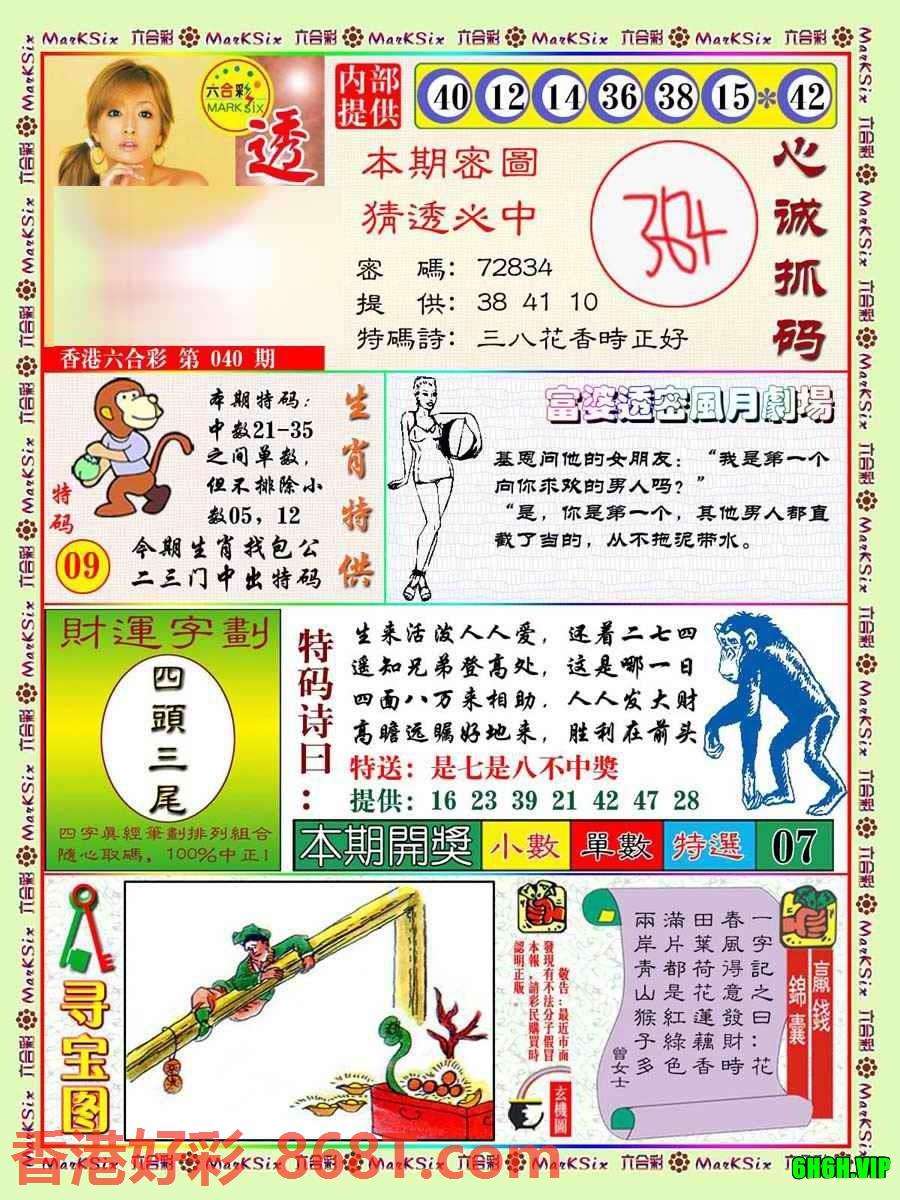 MarKSix 六合彩 MarKSix 六合彩 MarKSix 六合彩 MarKSix 六合彩 MarKSix 六合彩
六合彩
MARK SIX
透
内部
提供
40 12 14 36 38 15 * 42
本期密圖
猜透必中
密 碼: 72834
提 供: 38 41 10
特碼詩: 三八花香時正好
心诚抓码
香港六合彩 第 040 期
特码
09
本期特码:
中数21-35
之间单数,
但不排除小
数05, 12
今期生肖找包公
二三门中出特码
生肖特供
富婆透密風月劇場
基恩问他的女朋友: “我是第一个
向你求欢的男人吗? ”
“是, 你是第一个, 其他男人都直
截了当的, 从不拖泥带水。
財運字劃
四頭三尾
四字眞經筆劃排列組合
隨心取碼, 100%中正!
特码诗曰:
生来活泼人人爱, 还着二七四
遥知兄弟登高处, 这是哪一日
四面八万来相助, 人人发大财
高瞻远瞩好地来, 胜利在前头
特送: 是七是八不中獎
提供: 16 23 39 21 42 47 28
本期開獎 小數 單數 特選 07
寻宝图
敬告:最近市面
發現有不法分子假冒
本報,請彩民購買時
認明正版。
玄機圖
一字記之曰: 花
春風得意發財時
田葉荷花蓮藕香
滿片都是紅綠色
兩岸青山猴子多
曾女士
贏錢
錦囊
香港好彩.868T.com
MarKSix 六合彩 MarKSix 六合彩 MarKSix 六合彩 MarKSix 六合彩 MarKSix
6H6H.VIP